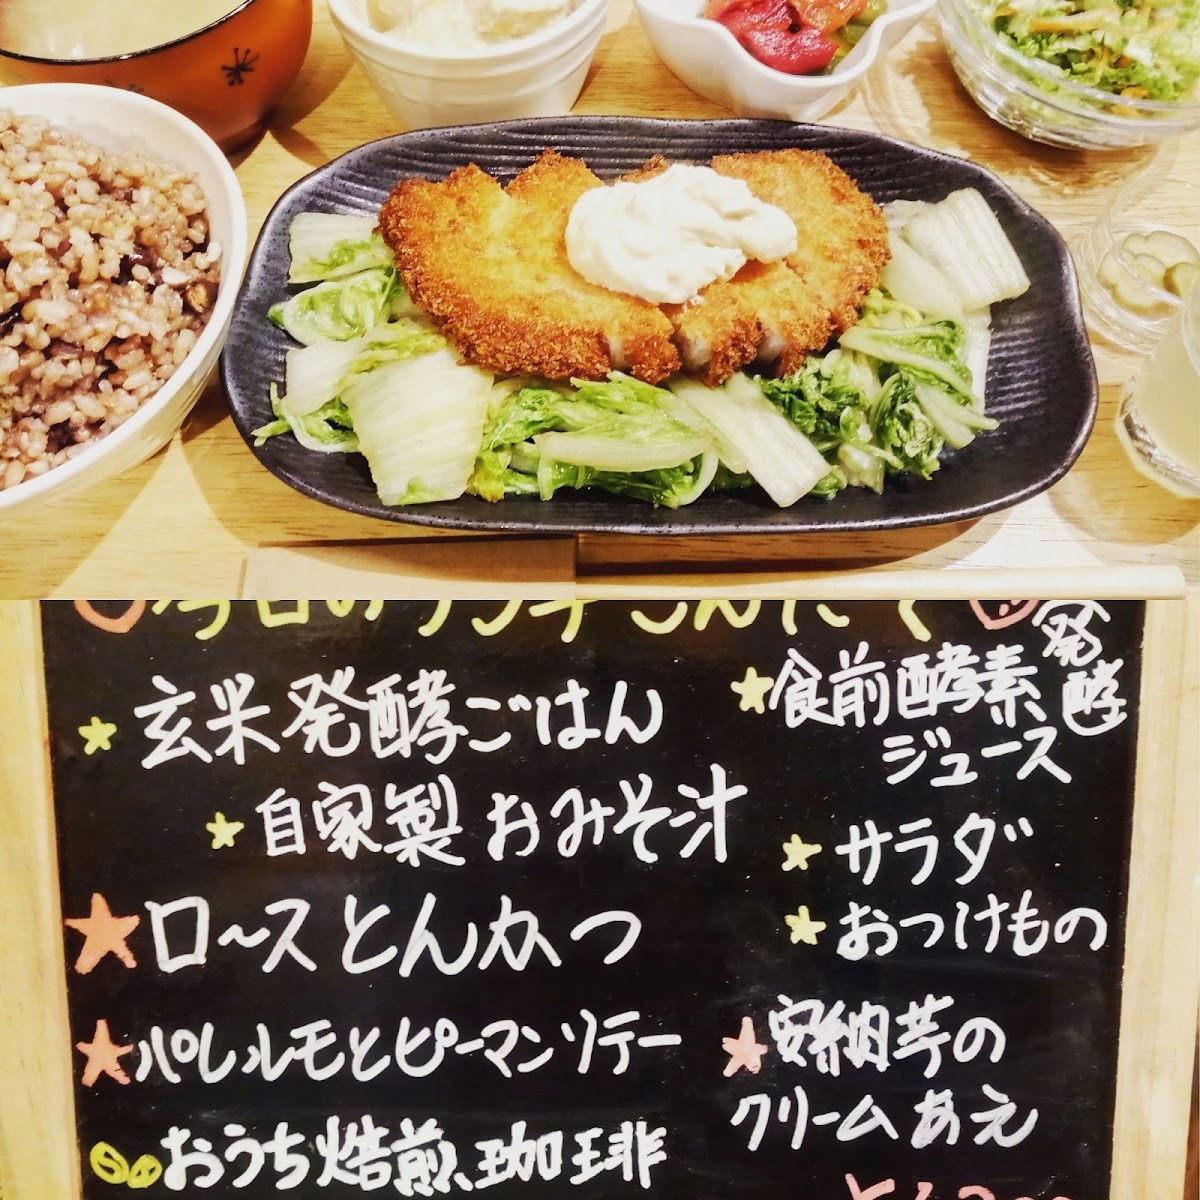 今日のランチこんだて
玄米発酵ごはん
自家製おみそ汁
ロースとんかつ
パレルモとピーマンソテー
おうち焙煎珈琲
食前酵素
発酵
ジュース
サラダ
おつけもの
安納芋の
クリームあえ